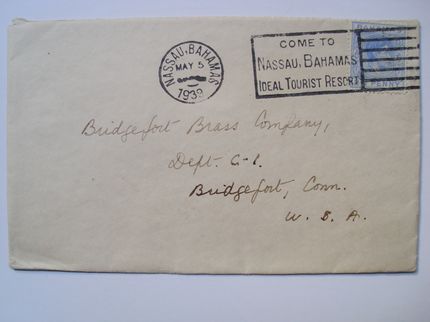 NASSAU, BAHAMAS
MAY 5
1939
COME TO
NASSAU, BAHAMAS
IDEAL TOURIST RESORT
BAHAMAS
PENNY
Bridgeport Brass Company,
Dept. C-1.
Bridgeport, Conn.
U. S. A.